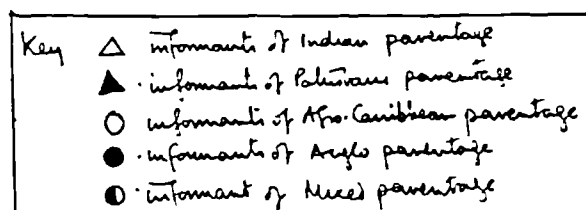 Key △ informants of Indian parentage
▲ informants of Pakistani parentage
○ informants of Afro-Caribbean parentage
● informants of Anglo parentage
◐ informant of Mixed parentage